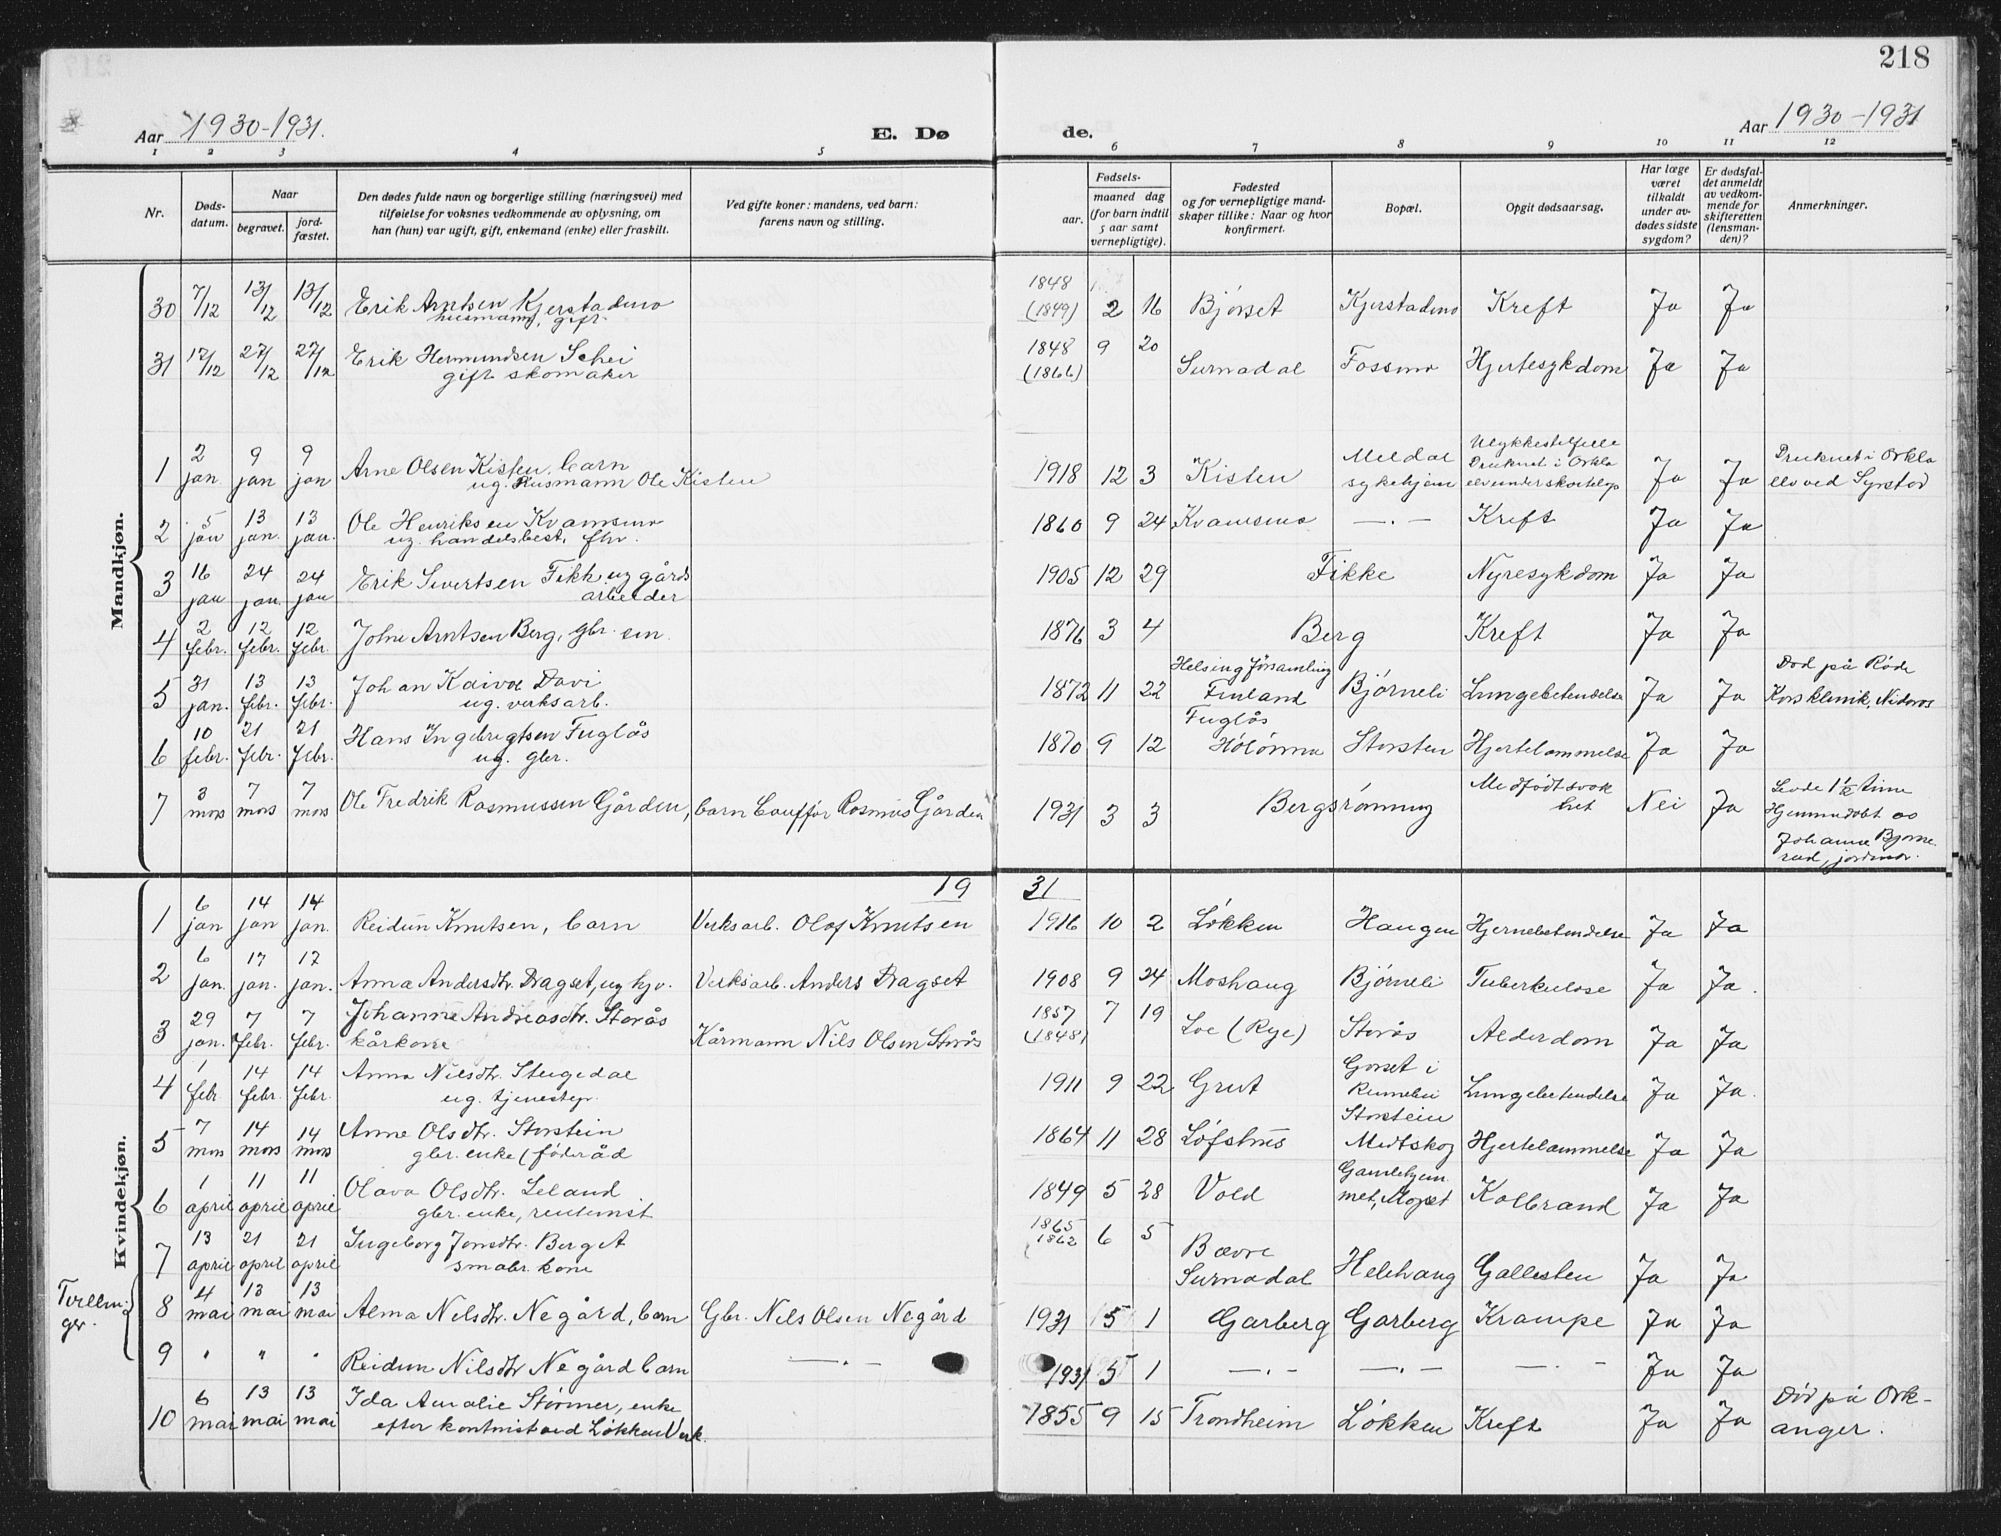 218
Aar 1930-1931.
E. Dø
de.
Aar 1930-1931
1 2 3 4 5 6 7 8 9 10 11 12
Nr.
Døds-
datum.
Naar
begravet.
jord-
fæstet.
Den dødes fulde navn og borgerlige stilling (næringsvei) med
tilføielse for voksnes vedkommende av oplysning, om
han (hun) var ugift, gift, enkemand (enke) eller fraskilt.
Ved gifte koner: mandens, ved barn:
farens navn og stilling.
Fødsels-
aar.
maaned dag
(for barn indtil
5 aar samt
vernepligtige).
Fødested
og for vernepligtige mand-
skaper tillike: Naar og hvor
konfirmert.
Bopæl.
Opgit dødsaarsag.
Har læge
været
tilkaldt
under av-
dødes sidste
sygdom?
Er dødsfal-
det anmeldt
av vedkom-
mende for
skifteretten
(lensman-
den)?
Anmerkninger.
Mandkjøn.
30 7/12 13/12 13/12 Erik Arntsen Kjerstadmo 1848 (1849) 2 16 Bjørset Kjerstadmo Kreft Ja Ja
husmann, gift.
31 12/12 27/12 27/12 Erik Hermundsen Schei 1848 (1866) 9 20 Surnadal Fossmo Hjertesykdom Ja Ja
gift skomaker
1 2 jan 9 jan 9 jan Arne Olsen Kisten, barn 1918 12 3 Kisten Meldal sykehjem Ulykkestilfelle Druknet i Orkla elv under skøiteløp Ja Ja Druknet i Orkla elv ved Syrstad
ug. Husmann Ole Kisten
2 5 jan 13 jan. 13 jan. Ole Henriksen Kvamsmo 1860 9 24 Kvamsmo —.— Kreft Ja Ja
ug. handelsbest. fhv.
3 16 jan 24 jan. 24 jan Erik Sivertsen Fikke ug gårds 1905 12 29 Fikke Nyresykdom Ja Ja
arbeider
4 2 febr. 12 febr. 12 febr. John Arntsen Berg, gbr. em. 1876 3 4 Berg Kreft Ja Ja
5 31 jan. 13 febr. 13 febr. Johan Kaivo Davi 1872 11 22 Helsing forsamling Finland Bjørneli Lungebetendelse Ja Ja Død på Røde Kors klinik, Nidaros
ug. verksarb.
6 10 febr. 21 febr. 21 febr. Hans Ingebrigtsen Fuglås 1870 9 12 Fuglås Hølonda Storsten Hjertelammelse Ja Ja
ug. gbr.
7 3 mars 7 mars 7 mars Ole Fredrik Rasmussen Gården, barn Cauffør Rasmus Gården 1931 3 3 Bergsrønning Medfødt svak het Nei Ja Levde 1½ time Hjemmedøbt av Johanne Bjørnerud, jordmor.
Kvindekjøn.
1931
1 6 jan 14 jan 14 jan. Reidun Knutsen, barn Verksarb. Olof Knutsen 1916 10 2 Løkken Haugen Hjernebetendelse Ja Ja
2 6 jan. 17 jan. 17 jan. Anna Andersdtr. Dragset, ug hjv. Verksarb. Anders Dragset 1908 9 24 Moshaug Bjørneli Tuberkulose Ja Ja.
3 29 jan. 7 febr. 7 febr. Johanne Andreasdtr. Storås 1857 (1848) 7 19 Loe (Rye) Storås Alderdom Ja Ja
kårkone Kårmann Nils Olsen Storås
4 1 febr. 14 febr. 14 febr. Anna Nilsdtr. Stugedal 1911 9 22 Grut Gorset i Rennebu Lungebetendelse Ja Ja.
ug. tjenestepi.
5 7 mars 14 mars 14 mars Anne Olsdtr. Storstein 1864 11 28 Løfshus Storstein Medtskog Hjertelammelse Ja Ja
gbr. enke (føderåd
6 1 april 11 april 11 april Olava Olsdtr. Leland 1849 5 28 Vold Gamlehjemmet, Mopset Kolbrand Ja Ja
gbr. enke, rentenist
7 13 april 21 april 21 april Ingeborg Jonsdtr. Berget 1865 1862 6 5 Bævre Surnadal Helehaug Gallesten Ja Ja
småbr. kone
Tvillinger.
8 4 mai 13 mai 13 mai Alma Nilsdtr. Negård, barn Gbr. Nils Olsen Negård 1931 5 1 Garberg Garberg Krampe Ja Ja
9 " " " Reidun Nilsdtr Negård barn —.— 1931 5 1 —.— —.— —.— Ja Ja
10 6 mai 13 mai 13 mai Ida Amalie Størmer, enke 1855 9 15 Trondheim Løkken Kreft Ja Ja Død på Orkanger.
efter kontorist ved Løkken Verk.